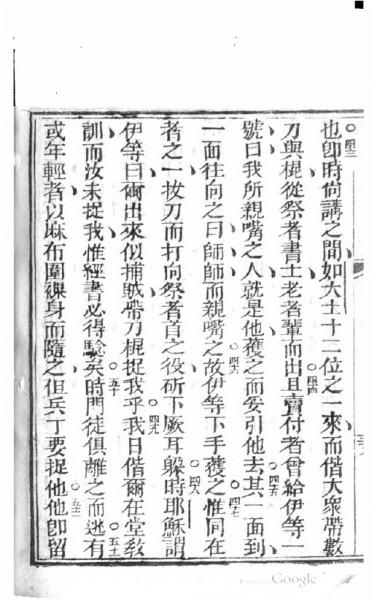 也○四三卽時尚講之間如大士十二位之一來而偕大衆帶數
刀與棍從祭者書士老者輩而出○四四且賣付者曾給伊等一
號曰我所親嘴之人就是他獲之而安引他去○四五其一面到
一面往向之曰師師而親嘴之○四六故伊等下手獲之○四七惟同在
者之一拔刀而打向祭者首之役斫下厥耳躲○四八時耶穌謂
伊等曰爾出來似捕賊帶刀棍捉我乎○四九我日偕爾在堂敎
訓而汝未捉我惟經書必得驗矣○五十時門徒俱離之而逃○五十一有
或年輕者以麻布圍裸身而隨之但兵丁要捉他○五十二他卽留
Google